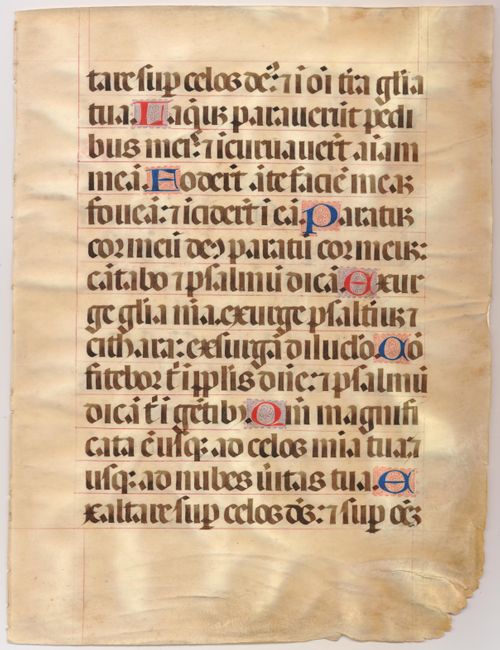 tare sup̄ celos de᷒: ⁊ ī oī t̄ra gl̄ia
tua. Laq̄uȝ parauer̄ūt pedi
bus meı᷒: ⁊ īcuruauer̄t aīam
meā. Foder̄t āte faciē meaȝ
foueā: ⁊ īcider̄t ī eā. Paratuȝ
cor meū deꝰ paratū cor meuȝ:
cātabo ⁊ psalmū dicā. Exur
ge gl̄ia m̄a. exurge psaltiuȝ ⁊
cithara: exsurgā diluc̄lo. Cō
fitebor t̄ ī pp̄lis dn̄e: ⁊ psalmū
dicā t̄ ī gētibꝰ. Qm̄ magnifi
cata ē usq: ad celos mīa tua: ⁊
usq: ad nubes ūitas tua. E
xaltare sup̄ celos dȝ̄: ⁊ sup̄ oēȝ